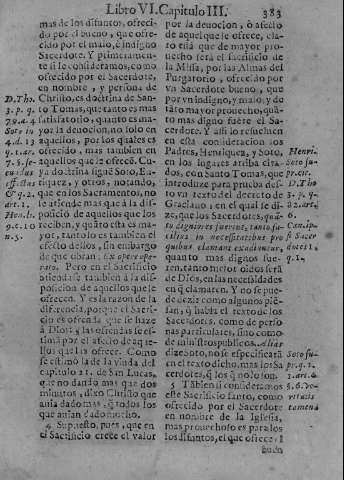 Libro VI. Capitulo III. 383
mas de los difuntos, ofreci-
do por el bueno, que ofre-
cido por el malo, è indigno
Sacerdote. Y primeramen-
te si le consideramos, como
ofrecido por el Sacerdote,
en nombre, y persona de
D. Tho. Christo, es doctrina de San-
3. p. q. to Tomas, que tanto es mas
79. a. 4 satisfatorio, quanto es ma-
Soto in yor la deuocion, no solo en
4. d. 13 aquellos, por los quales es
ofrecido, mas tambien en
aquellos que le ofrecē. Cu-
ya doctrina siguē Soto, En-
riquez, y otros, notando,
que en los Sacramentos, no
se atiende mas que à la dis-
Hen. posicion de aquellos que los
9. c. 10 reciben, y quāto esta es ma-
n. 5. yor, tanto lo es tambien el
efecto dellos, sin embargo
de que obran: Ex opere ope-
rato. Pero en el Sacrificio
atiendase tambien à la dis-
posicion de aquellos que le
ofrecen. Y es la razon de la
diferencia, porque el Sacri-
ficio es ofrenda que se haze
à Dios: y las ofrendas se es-
timā por el afecto de aque-
llos que las ofrece. Como
se estimò la de la viuda del
capitulo 21. de San Lucas,
que no dando mas que dos
minutos, dixo Christo que
auia dado mas, q̄ todos los
que auian dado mucho.
4 Supuesto, pues, que en
el Sacrificio crece el valor
por la deuocion, ò afecto
de aquel que le ofrece, cla-
ro està que de mayor pro-
uecho serà el sacrificio de
la Missa, por las Almas del
Purgatorio, ofrecido por
vn Sacerdote bueno, que
por vn indigno, y malo: y de
tāto mayor prouecho, quā-
to mas digno fuere el Sa-
cerdote. Y assi lo resueluen
en esta consideracion los
Padres, Henriquez, y Soto,
en los lugares arriba cita-
dos, con Santo Tomas, que
introduze para prueba des-
to vn texto del decreto de
Graciano, en el qual se di-
ze, que los Sacerdotes, quā-
to digniores fuerint, tanto fa-
cilius in necessitatibus pro
quibus clamant exaudiuntur,
quanto mas dignos fue-
ren, tanto mejor oidos serā
de Dios, en las necessidades
en q̄ clamaren. Y no se pue-
de dezir como algunos piē-
san, q̄ habla el texto de los
Sacerdotes, como de perso-
nas particulares, sino como
de ministros publicos. Aliàs
dize Soto, no se especificarà
en el texto dicho, mas los Sa-
cerdotes, q̄ los q̄ no lo son.
5 Tābien si consideramos
este Sacrificio santo, como
ofrecido por el Sacerdote
en nombre de la Iglesia,
mas prouechoso es para los
los difuntos, el que ofrece el
buen
Henri.
Soto su-
D. Tho
3. p. q.
82. art.
6.
Soto su-